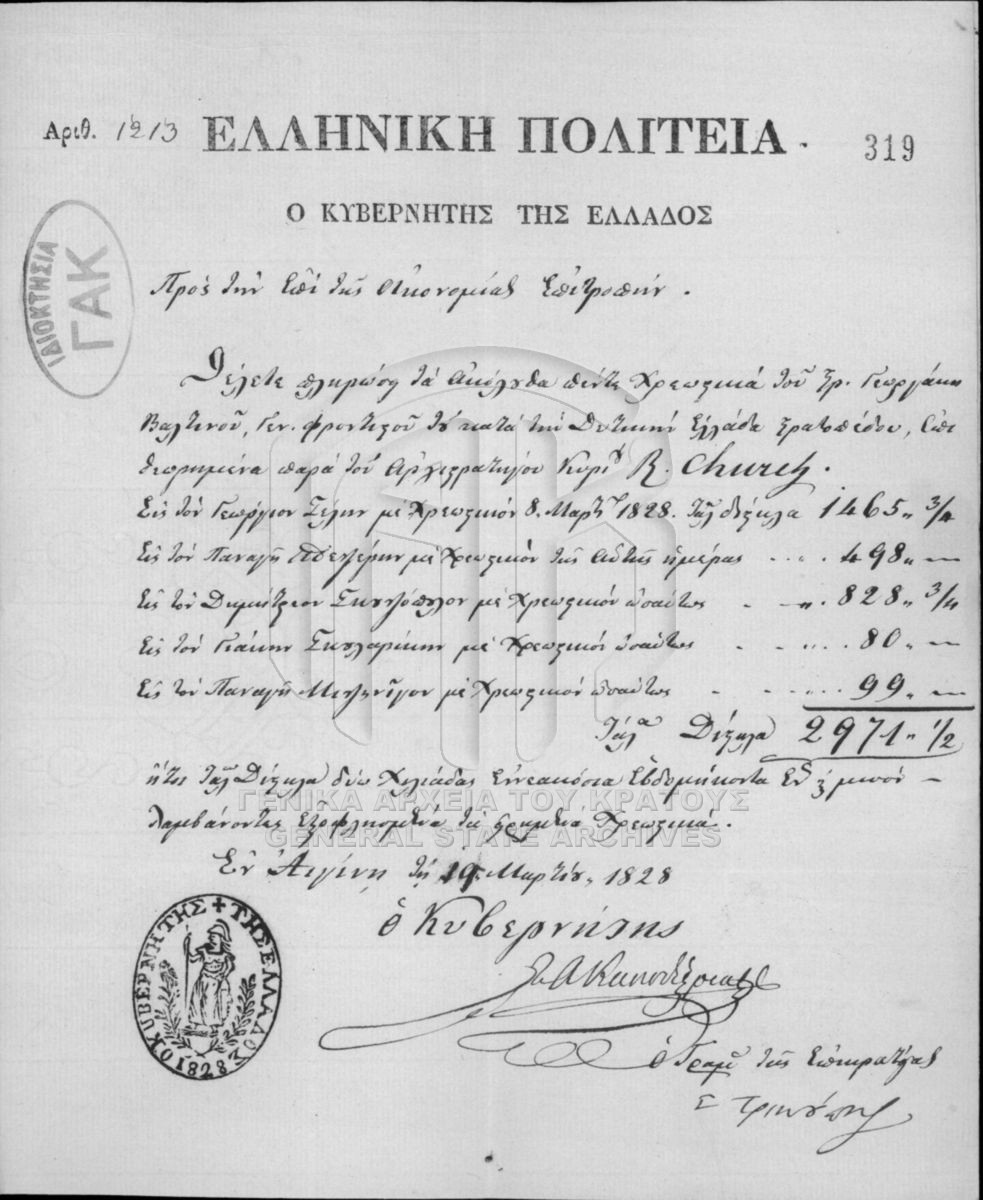 Αριθ. 1213 ΕΛΛΗΝΙΚΗ ΠΟΛΙΤΕΙΑ. 319
Ο ΚΥΒΕΡΝΗΤΗΣ ΤΗΣ ΕΛΛΑΔΟΣ
ΙΔΙΟΚΤΗΣΙΑ
ΓΑΚ
Πρὸς τὴν ἐπὶ τῆς Οἰκονομίας Ἐπιτροπήν.
Θέλετε πληρώση τὰ ἀκόλουθα πέντε χρεωστικά τοῦ στρ. Γεωργάκη
Βαλτινοῦ, Γεν. φροντιστοῦ τοῦ κατὰ τὴν Δυτικὴν Ἑλλάδα στρατοπέδου, ἐπι
θεωρημένα παρὰ τοῦ ἀρχιστρατήγου Κυρίου R. Church.
Εἰς τὸν Γεώργιον μὲ χρεωστικόν 8. Μαρτίου 1828. Τάλ δίστηλα 1465 " 3/4
Εἰς τὸν Παναγῆ μὲ χρεωστικόν τῆς αὐτῆς ἡμέρας . . . . 498 " —
Εἰς τὸν Δημήτριον μὲ χρεωστικόν ὡσαύτως . . . 828 " 3/4
Εἰς τὸν Γιάννην μὲ χρεωστικόν ὡσαύτως . . . . 80 " —
Εἰς τὸν Παναγῆ μὲ χρεωστικόν ὡσαύτως . . . . 99 " —
Τάλα Δίστηλα 2971 " 1/2
ἤτοι Τάλ Δίστηλα δύω χιλιάδας ἐννεακόσια ἑβδομήκοντα ἓν ϗ μισόν —
λαμβάνοντες ἐξωφλημένα τὰ εἰρημένα χρεωστικά.
ΓΕΝΙΚΑ ΑΡΧΕΙΑ ΤΟΥ ΚΡΑΤΟΥΣ
GENERAL STATE ARCHIVES
Ἐν Αἰγίνῃ τῇ 19. Μαρτίου 1828
ὁ Κυβερνήτης
Ι. Α. Καποδίστριας
Ο ΚΥΒΕΡΝΗΤΗΣ + ΤΗΣ ΕΛΛΑΔΟΣ
1828
ὁ Γραμ τῆς ἐπικρατείας
Σ Τρικούπης